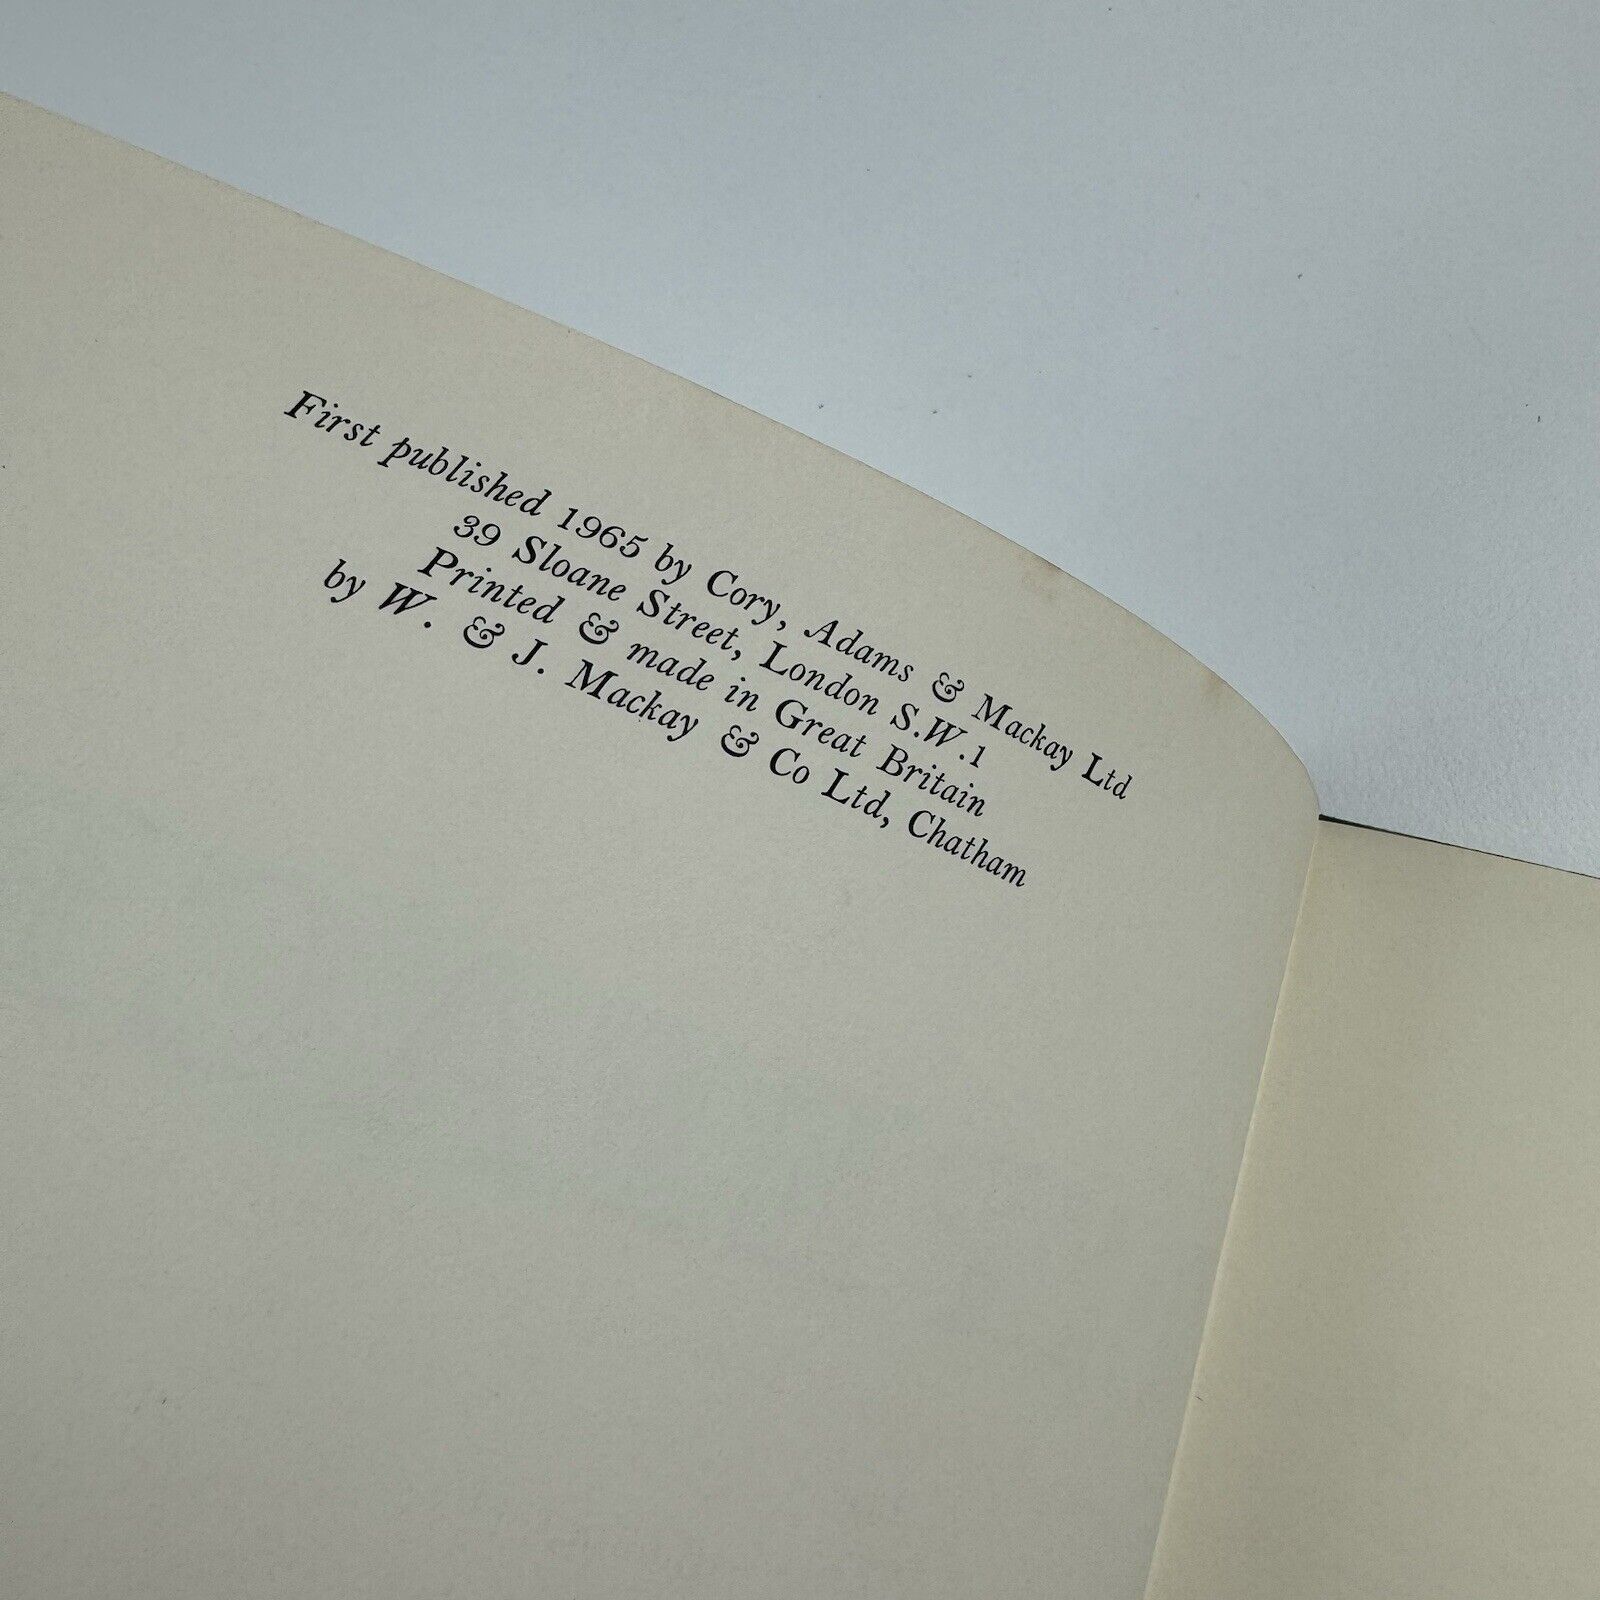 First published 1965 by Cory, Adams & Mackay Ltd
39 Sloane Street, London S.W.1
Printed & made in Great Britain
by W. & J. Mackay & Co Ltd, Chatham